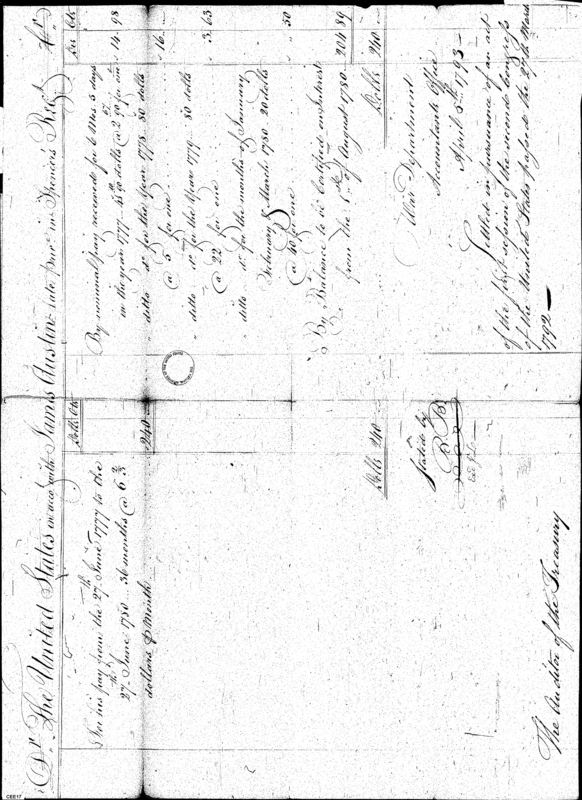 Dr. The United States in acct. with James Austin late priv. in Spencer's Regt. Cr.
Dolls Cts
For his pay from the 27th June 1777 to the
27th June 1780 .. 36 months @ 6 2/3
dollars P Month
240
Dolls 240
Stated by
The Auditor of the Treasury
Dols Cts
By nominal pay received for 6 Mos 5 days
in the year 1777
dolls @ 2 90 for one
14.98
ditto do for the Year 1778 80 dolls
@ 5 for one
16.
ditto do for the Year 1779 80 dolls
@ 22 for one
3.63
ditto do for the months of January
February & March 1780 20 dolls
@ 40 for one
.50
By Balance to be Certified on Interest
from the
of August 1780
204 89
Dolls 240
War Department
Accountants Office
April 5th 1793
Settled in pursuance of an act
of the first session of the second Congress
of the United States passed the 27th March
1792
CEE17